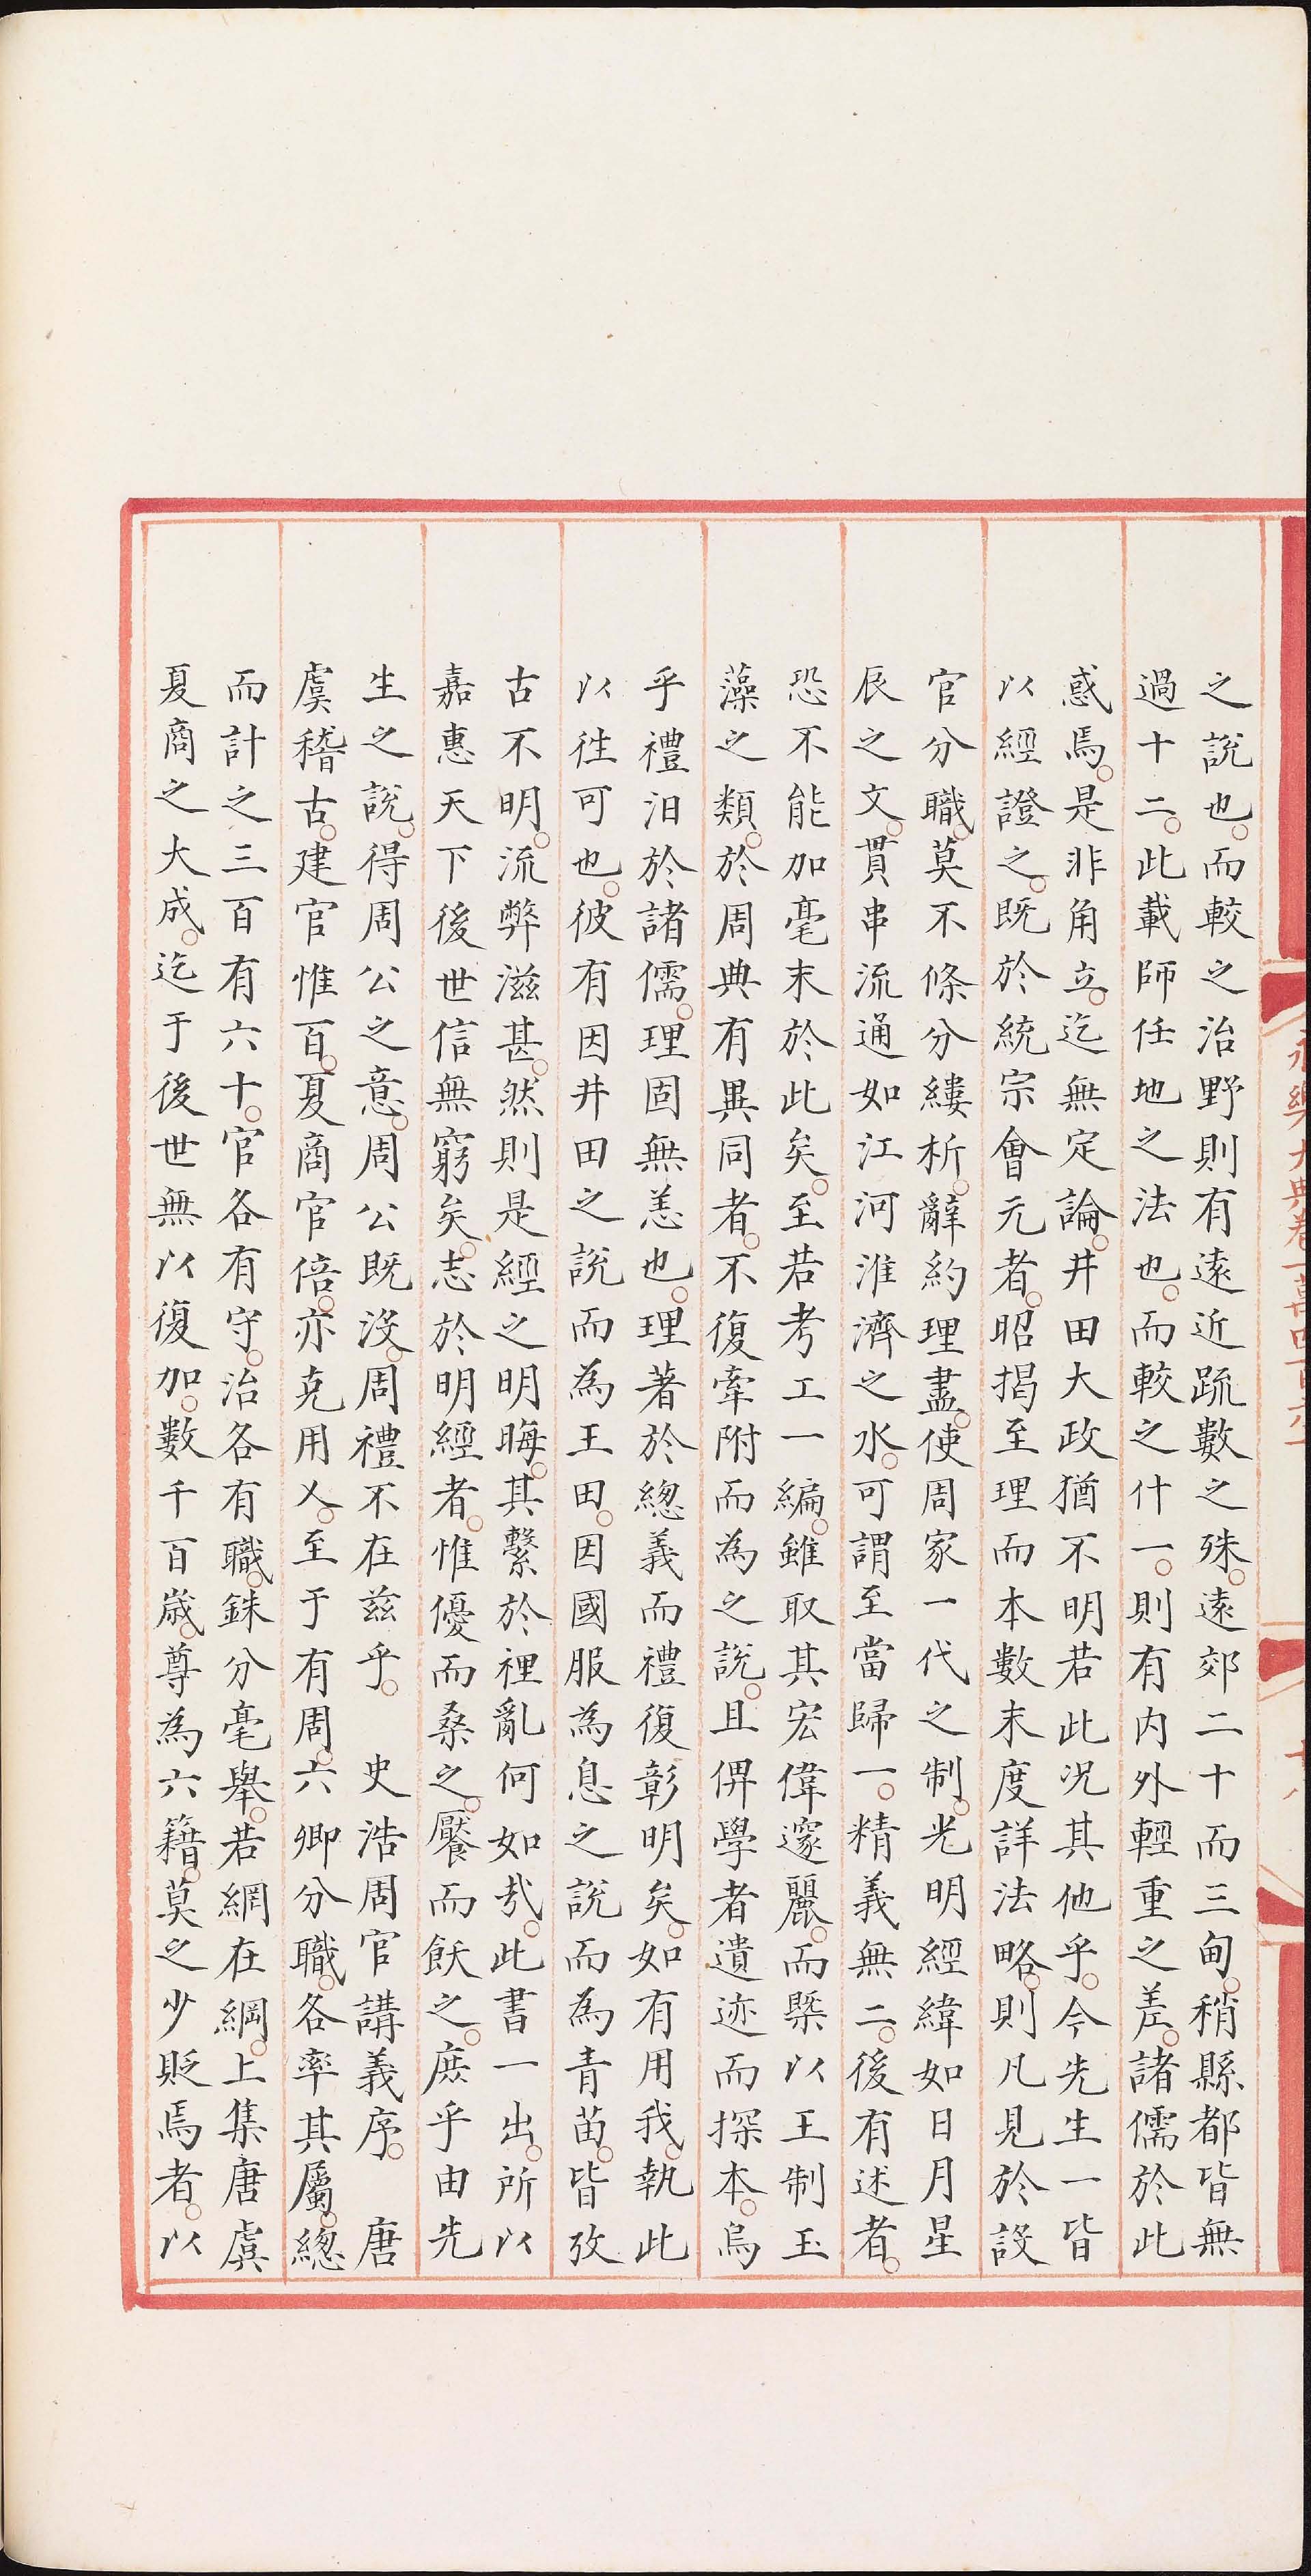 永樂大典卷一萬四百六十
之說也而較之治野則有遠近疏數之殊遠郊二十而三甸稍縣都皆無
過十二此載師任地之法也而較之什一則有内外輕重之差諸儒於此
惑焉是非角立迄無定論井田大政猶不明若此况其他乎今先生一皆
以經證之既於統宗會元者昭揭至理而本數末度詳法略則凡見於設
官分職莫不條分縷析辭約理盡使周家一代之制光明經緯如日月星
辰之文貫串流通如江河淮濟之水可謂至當歸一精義無二後有述者
恐不能加毫末於此矣至若考工一編雖取其宏偉邃麗而槩以王制玉
藻之類於周典有異同者不復牽附而為之說且俾學者遺迹而探本烏
乎禮汨於諸儒理固無恙也理著於緫義而禮復彰明矣如有用我執此
以徃可也彼有因井田之說而為王田因國服為息之說而為青苗皆攷
古不明流弊滋甚然則是經之明晦其繫於理亂何如㢤此書一出所以
嘉惠天下後世信無窮矣志於明經者惟優而桑之饜而飫之庶乎由先
生之說得周公之意周公既沒周禮不在兹乎 史浩周官講義序 唐
虞稽古建官惟百夏商官倍亦克用乂至于有周六卿分職各率其屬緫
而計之三百有六十官各有守治各有職銖分毫舉若網在綱上集唐虞
夏商之大成迄于後世無以復加數千百歲尊為六籍莫之少貶焉者以